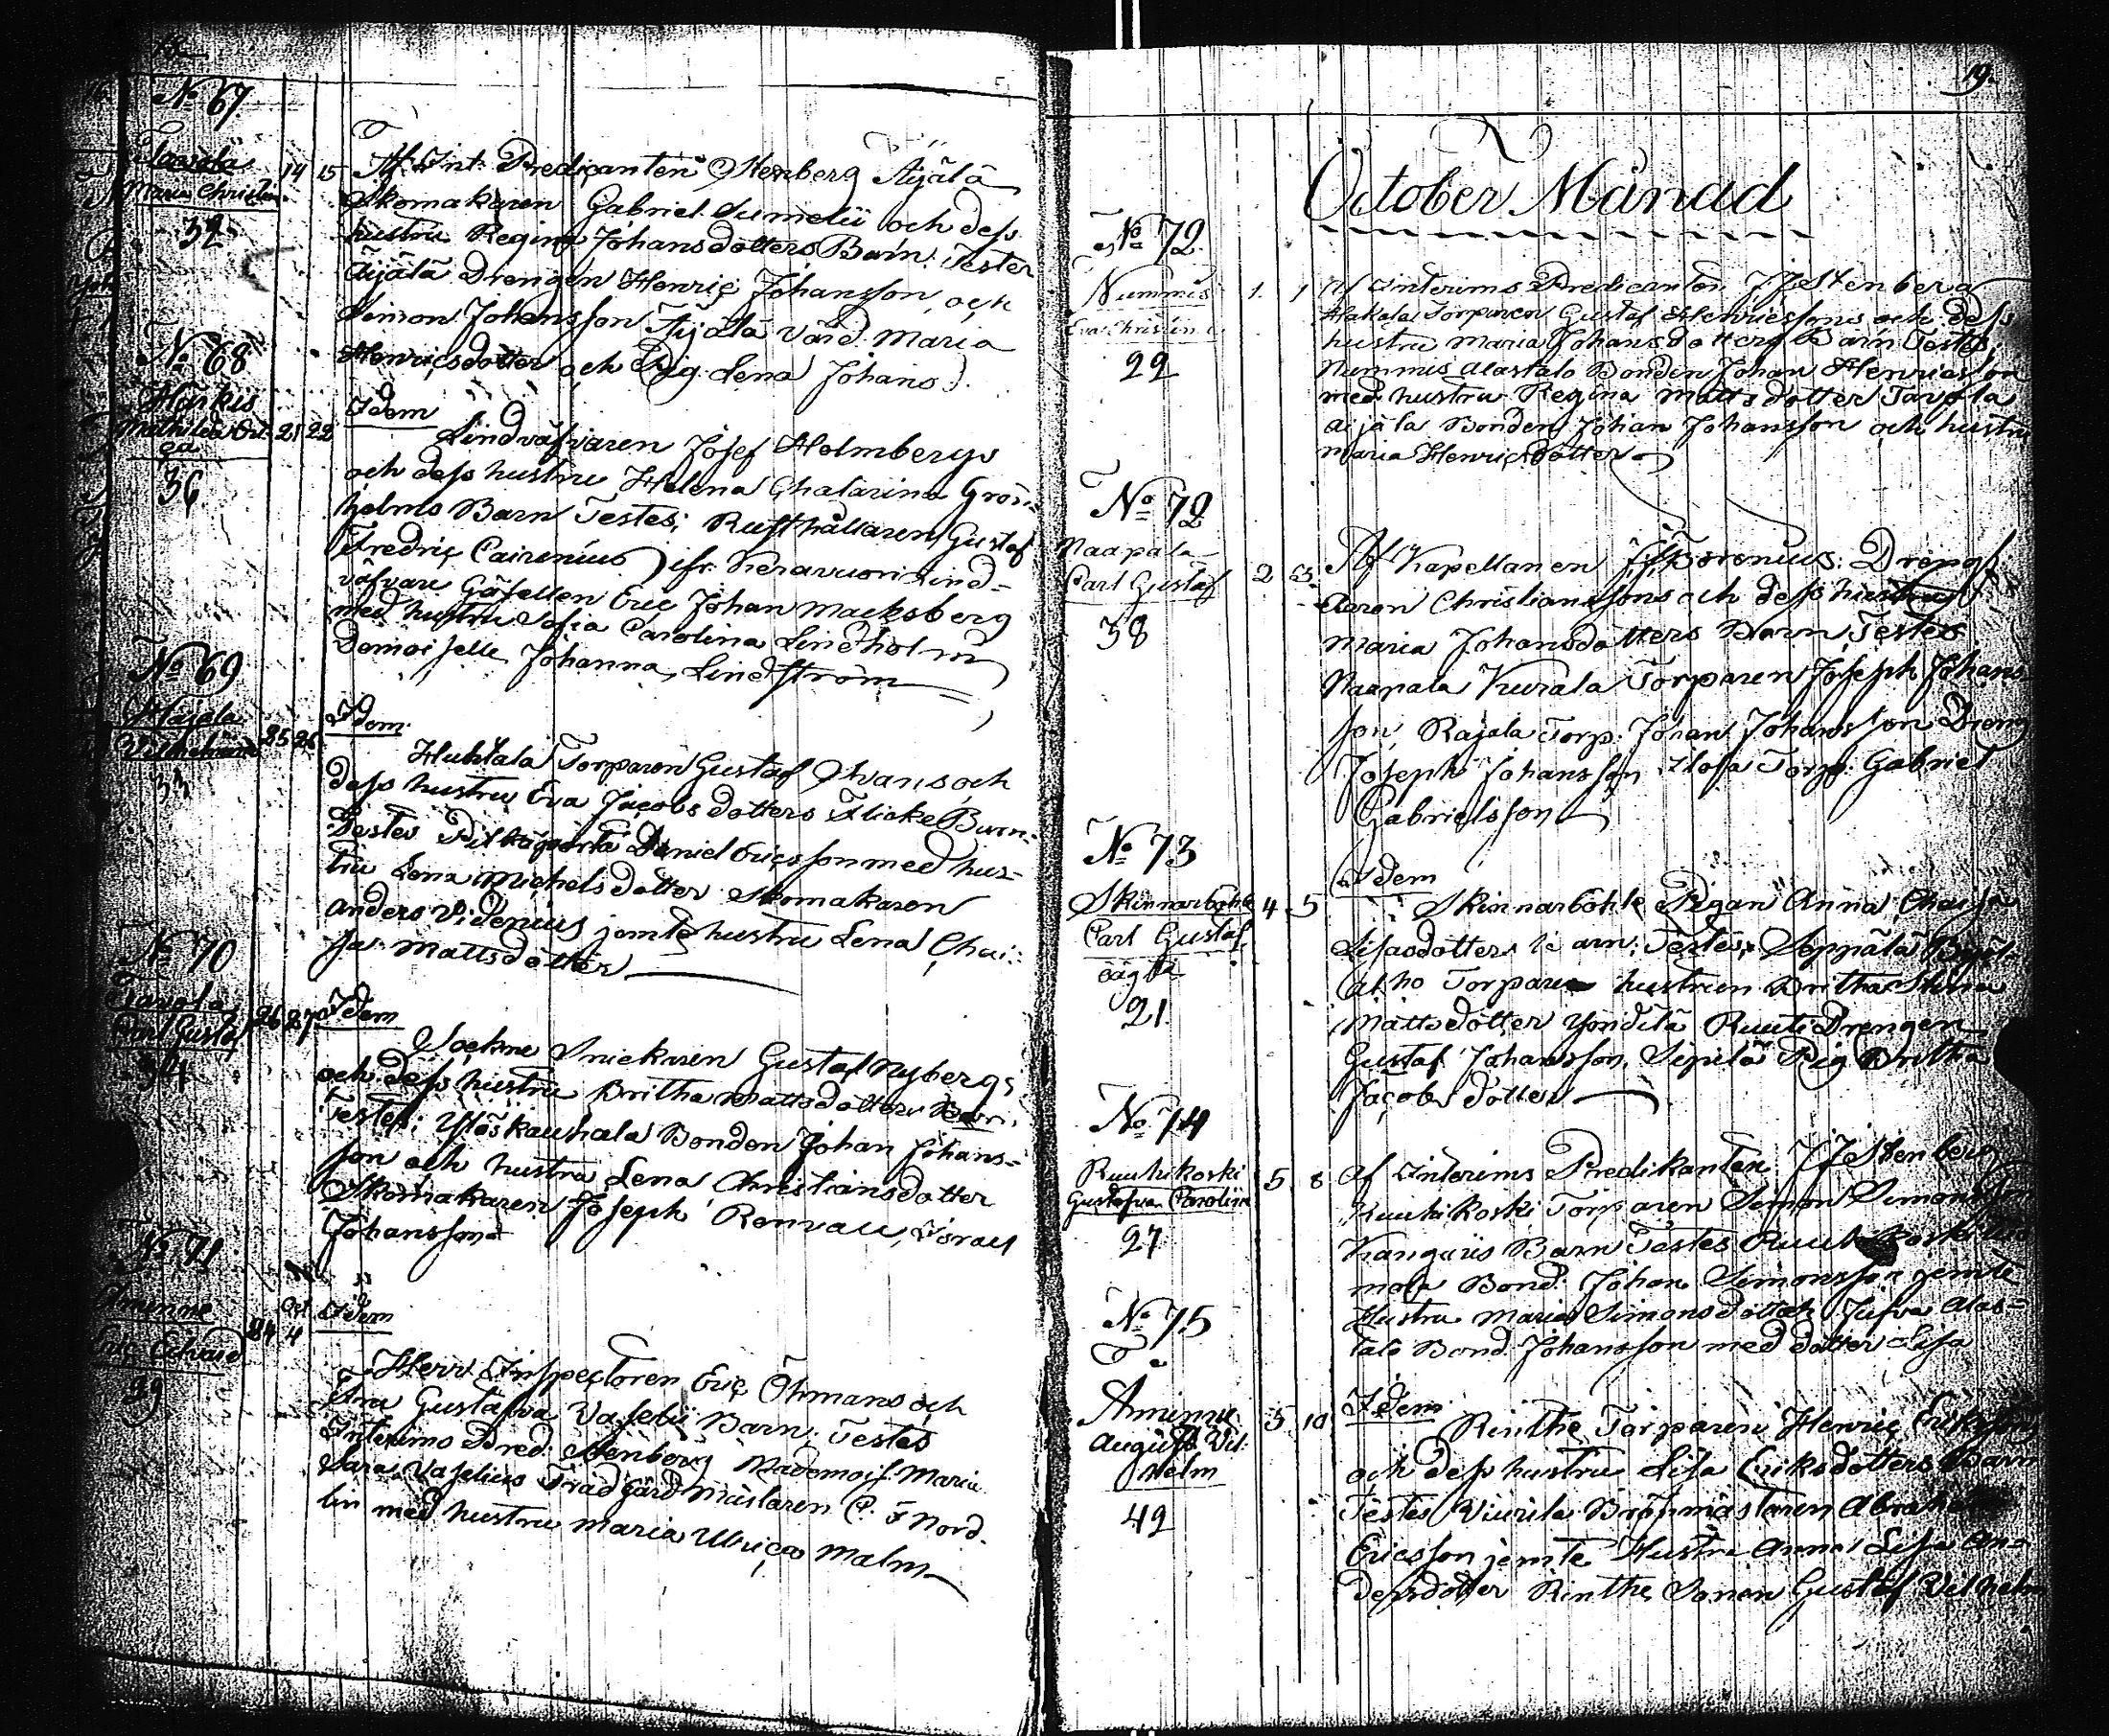 No 67
Tavola
Maria Christin.
14 15
32
Af Int. Predicanten Stenberg Äijälä
Skomakaren Gabriel Sumelii och dess
hustru Regina Johansdotters Barn. Testes
Äijälä Drengen Henric Johansson och
Simon Johansson Äijälä Värd. Maria
Henricsdotter och Pig. Lena Johansd.
No 68
Härkis
Mathilda
21 22
36
Idem
Lindväfvaren Josef Holmbergs
och dess hustru Helena Chatarina Grön-
holms Barn Testes; Rusthållaren Gustaf
Fredric Cairenius ifr. Keravuori Lind-
väfvare Gäsellen Eric Johan Macksberg
med hustru Sofia Carolina Lindholm
Demoiselle Johanna Lindström
No 69
Hajala
Vilhelmina
25 26
33
Idem
Huhtala Torparen Gustaf Svans och
dess hustru Eva Jacobsdotters Flicke Barn.
Testes Daniel Ericsson med hus-
tru Lena Michelsdotter Skomakaren
Anders Videnius jemte hustru Lena Chai-
sa Mattsdotter
No 70
Tavola
Carl Gustaf
26 27
34
Idem
Sockne Snickaren Gustaf Nybergs
och dess hustru Britha Mattsdotters Barn.
Testes; Ylöskauhala Bonden Johan Johans-
son och hustru Lena Christiansdotter
Skomakaren Joseph Renvall, Israel
Johansson
No 71
Aminne
Eric Edvard
Oct.
24 4
29
Idem
Herr Inspectoren Eric Öhmans och
Fru Gustafva Vaselii Barn. Testes
Interims Pred. Stenberg Mademois. Maria
Sara Vaselius Trädgårdmästaren C. F Nord-
lin med hustru Maria Ulrica Malm
19.
October Månad
No 72
Nummis
Eva Christina
1. 1
22
Af Interims Predicanten J. J Stenberg
Hakala Torparen Gustaf Henricssons och dess
hustru Maria Johansdotters Barn Testes,
Nummis Alastalo Bonden Johan Henricsson
med hustru Regina Mattsdotter Tavola
Äijälä Bonden Johan Johansson och hustru
Maria Henricsdotter
No 72
Naapala
Carl Gustaf
2 3
38
Af Kapellanen Borenius: Drengs
Aaron Christianssons och dess hustru
Maria Johansdotters Barn, Testes
Naapala Kurala Torparen Joseph Johans
son, Rajala Torp. Johan Johansson Dreng
Joseph Johansson Ilola Torp. Gabriel
Gabrielsson
No 73
Skinnarböhle
Carl Gustaf
oägta
4 5
21.
Idem
Skinnarböhle Pigan Anna Chaisa
Lisasdotters Barn: Testes, Seppälä
Alho Torpare hustrun Britha Stina
Mattsdotter Ruuti Drengen
Gustaf Johansson, Sepilä Pig. Britha
Jacobsdotter
No 74
Ruuhikoski
Gustafva Carolina
5 8
27
Af Interims Predikanten J J Stenberg
Ruuhikoski Torparen Simon Simonsson
Barn Testes Ruuhikoski
mola Bond. Johan Simonsson jemte
Hustru Maria Simonsdotter, Alas-
talo Bond Johansson med dotter Lisa
No 75
Aminne
August Vil-
helm
5 10
42
Idem
Rinthe Torparen Henric Ericssons
och dess hustru Lisa Eriksdotters Barn
Testes Viurila Abraham
Ericsson jemte Hustru Anna Lisa An-
dersdotter Rinthe Sonen Gustaf Vilhelm